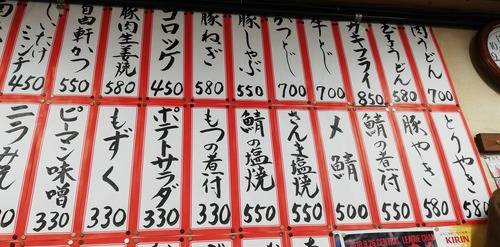 肉うどん 700
玉子うどん 580
カキフライ 850
牛とじ 700
かつとじ 700
豚しゃぶ 550
豚ねぎ 580
コロッケ 450
豚肉生姜焼 580
自由軒かつ 550
しいたけミンチ 450
とりやき 580
豚やき 580
鯖の煮付 550
〆鯖 500
さんま塩焼 550
鯖の塩焼 550
もつの煮付 330
ポテトサラダ 330
もずく 330
ピーマン味噌 330
KIRIN